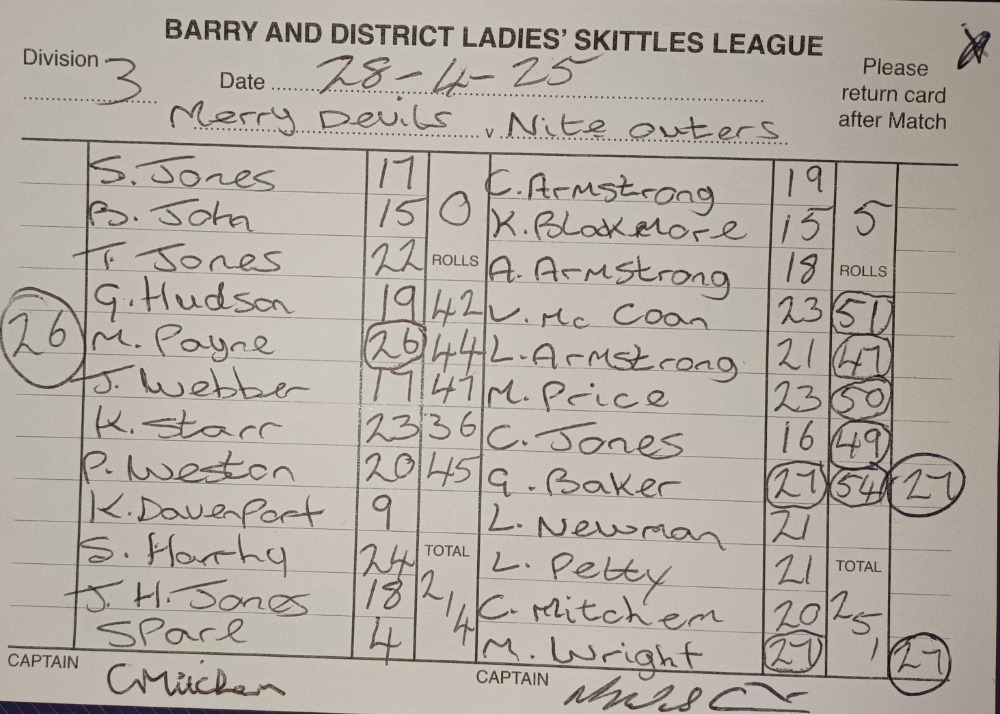 BARRY AND DISTRICT LADIES' SKITTLES LEAGUE
Division 3 Date 28-4-25 Please return card after Match
Merry Devils v Nite outers
S. Jones 17 C. Armstrong 19
B. John 15 0 K. Blakemore 15 5
T. Jones 22 ROLLS A. Armstrong 18 ROLLS
G. Hudson 19 42 V. Mc Coan 23 51
26 M. Payne 26 44 L. Armstrong 21 47
J. Webber 17 47 M. Price 23 50
K. Starr 23 36 C. Jones 16 49
P. Weston 20 45 G. Baker 27 54 27
K. Davenport 9 L. Newman 21
S. Harrhy 24 TOTAL L. Petty 21 TOTAL
J. H. Jones 18 214 C. Mitchem 20 251
SPare 4 M. Wright 27 27
CAPTAIN CMitchem CAPTAIN